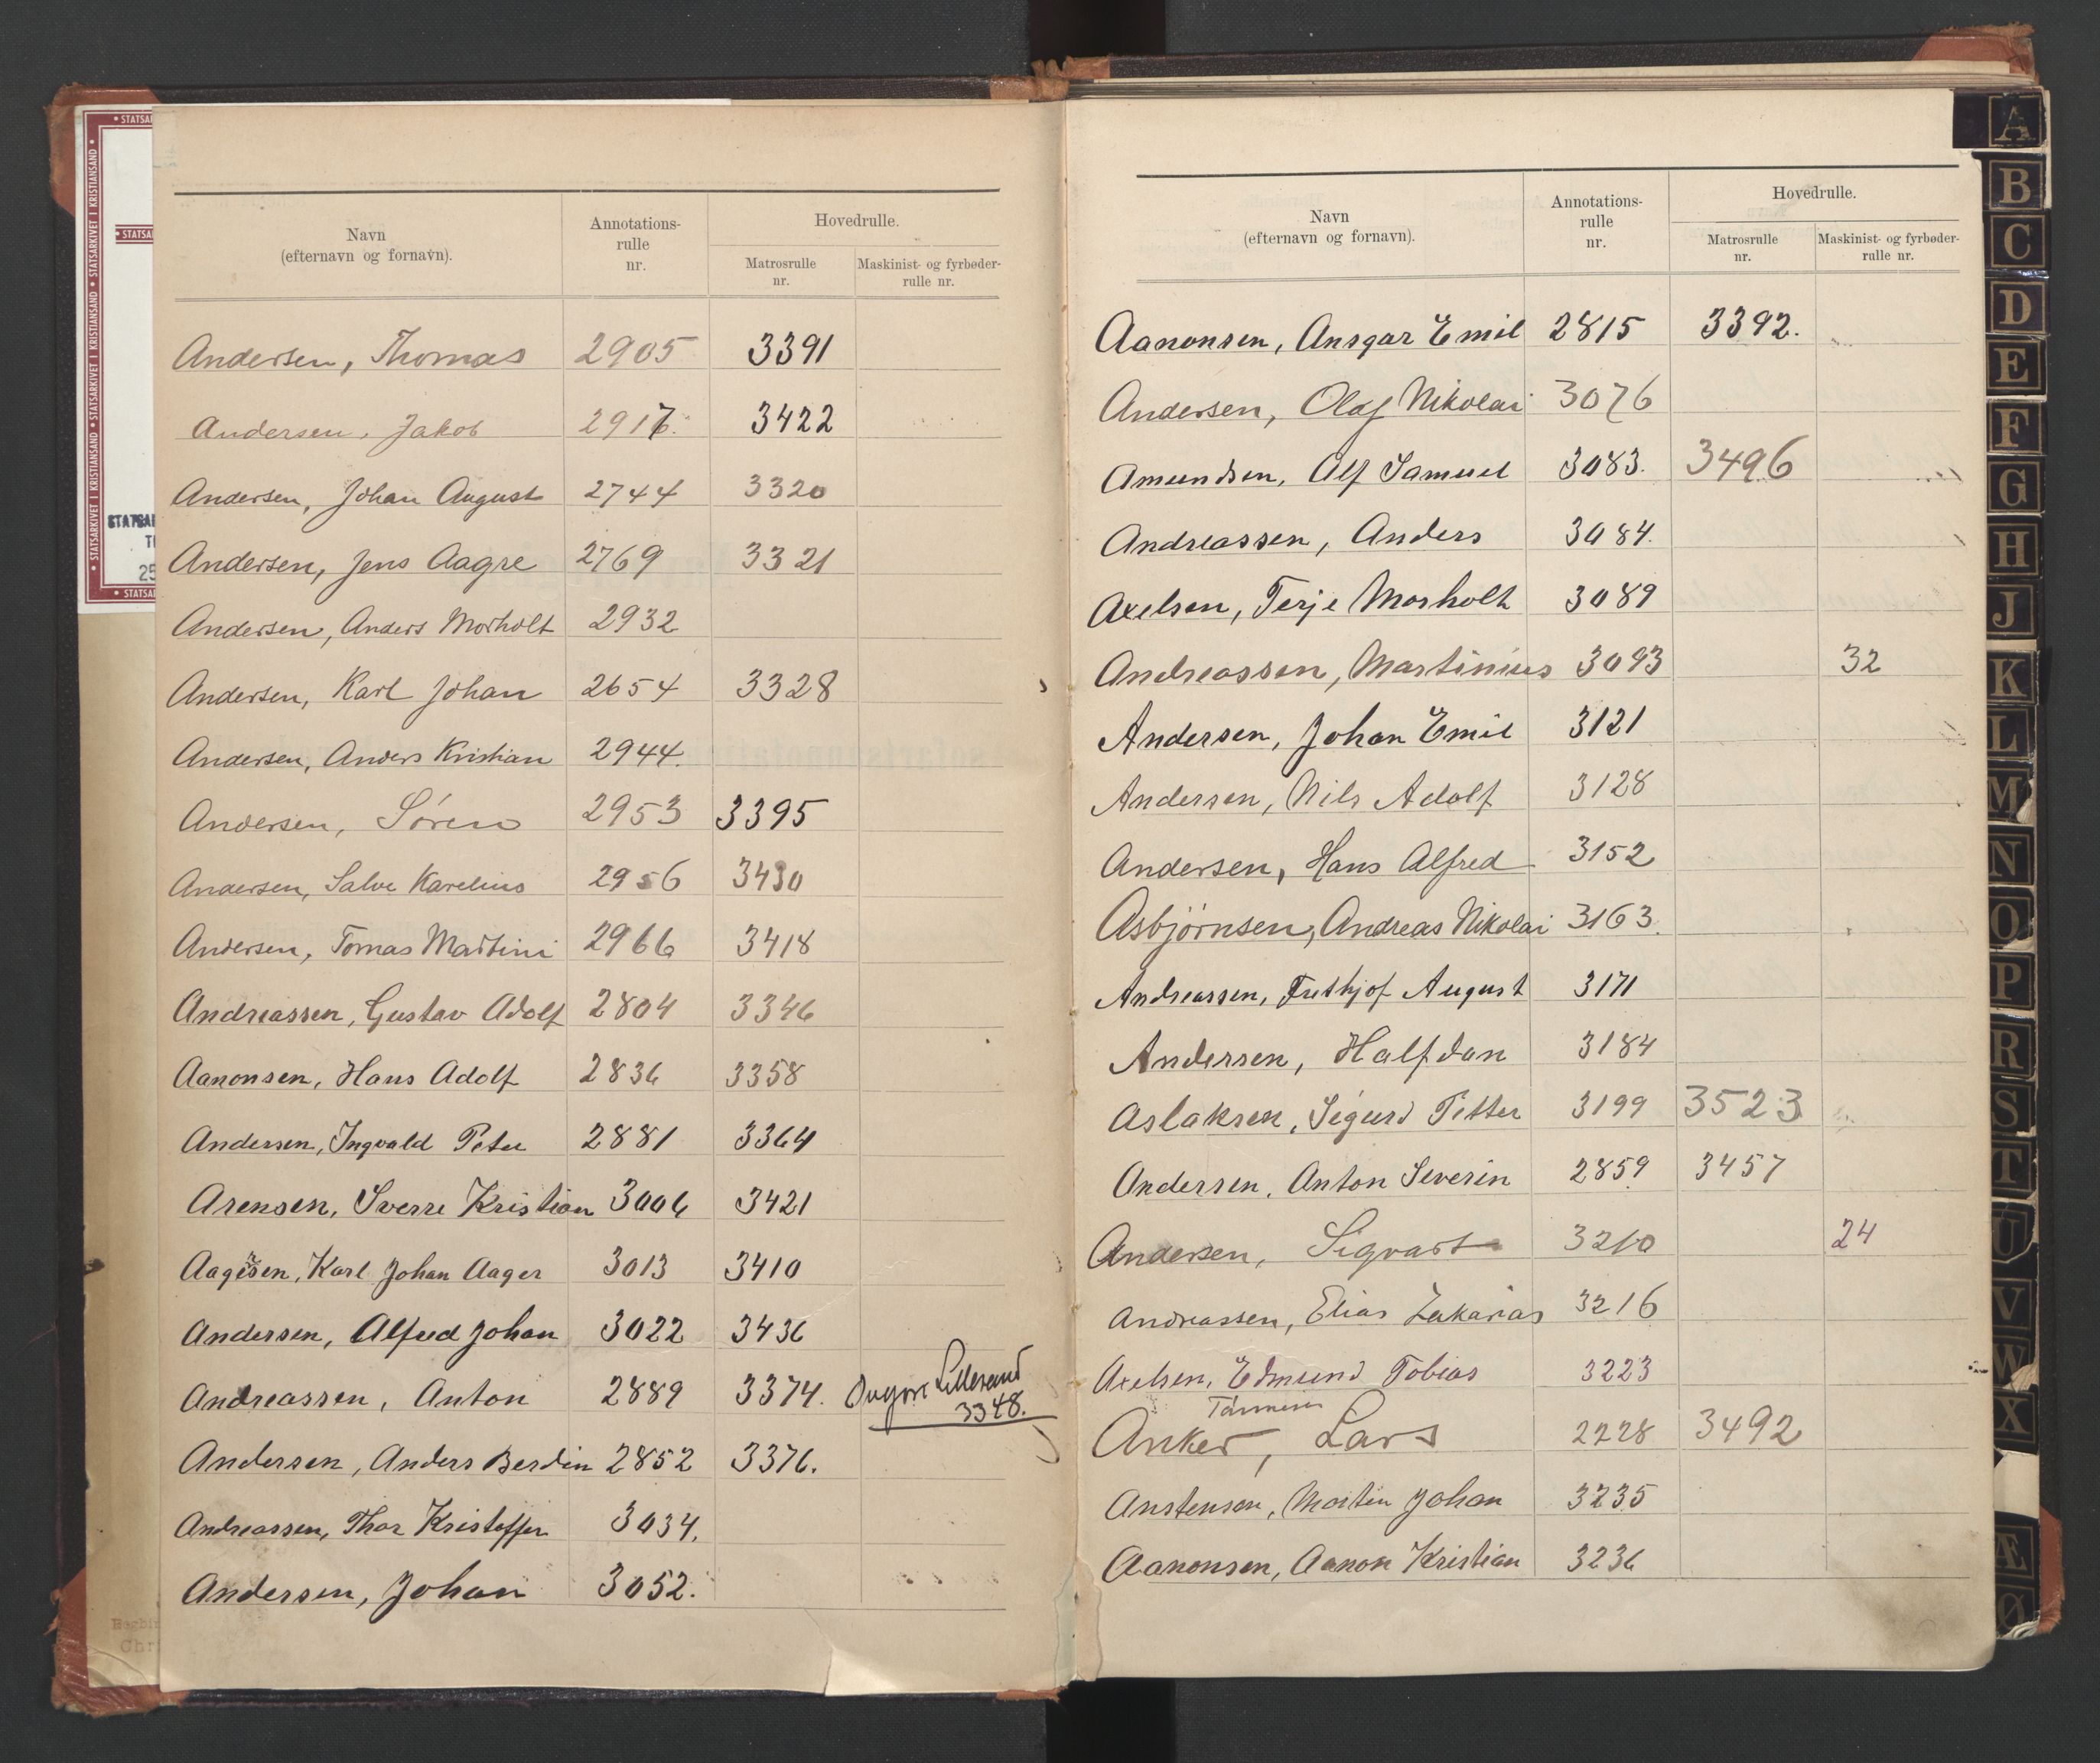 Navn
(efternavn og fornavn).
Annotations-
rulle
nr.
Hovedrulle.
Matrosrulle
nr.
Maskinist- og fyrbøder-
rulle nr.
Andersen, Thomas 2905 3391
Andersen, Jakob 2917. 3422
Andersen, Johan August 2744 3320
Andersen, Jens Aagre 2769 3321
Andersen, Anders Morholt 2932
Andersen, Karl Johan 2654 3328
Andersen, Anders Kristian 2944.
Andersen, Sören 2953 3395
Andersen, Salve Karelius 2956 3430
Andersen, Tomas Martini 2966 3418
Andreassen, Gustav Adolf 2804 3346
Aanonsen, Hans Adolf 2836 3358
Andersen, Ingvald Peter 2881 3364
Arensen, Sverre Kristian 3006 3421
Karl Johan Aager 3013 3410
Andersen, Alfred Johan 3022 3436
Andreassen, Anton 2889 3374. Lillesand
3348.
Andersen, Anders Berdin 2852 3376.
Andreassen, Thor Kristoffer 3034.
Andersen, Johan 3052.
Navn
(efternavn og fornavn).
Annotations-
rulle
nr.
Hovedrulle.
Matrosrulle
nr.
Maskinist- og fyrbøder-
rulle nr.
Aanonsen, Ansgar Emil 2815 3392.
Andersen, Olaf Nikolai 3076
Amundsen, Alf Samuel 3083. 3496
Andreassen, Anders 3084.
Axelsen, Terje Morholt 3089
Andreassen, Martinius 3093 32
Andersen, Johan Emil 3121
Andersen, Nils Adolf 3128
Andersen, Hans Alfred 3152
Asbjörnsen, Andreas Nikolai 3163.
Andreassen, Frithjof August 3171
Andersen, Halfdan 3184
Aslaksen, Sigurd Petter 3199 3523
Andersen, Anton Severin 2859 3457
Andersen, Sigvart 3210 24
Andreassen, Elias Zakarias 3216
Axelsen, Edmund Tobias 3223
Anker, Lars 2228 3492
Anstensen, Morten Johan 3235
Aanonsen, Aanon Kristian 3236
A
B
C
D
E
F
G
H
J
K
L
M
N
O
P
R
S
T
U
V
W
X
Æ
Ø
• STATSARKIVET I KRISTIANSAND • STATSARKIVET I KRISTIANSAND • STATSARKIVET I KRISTIANSAND •
25